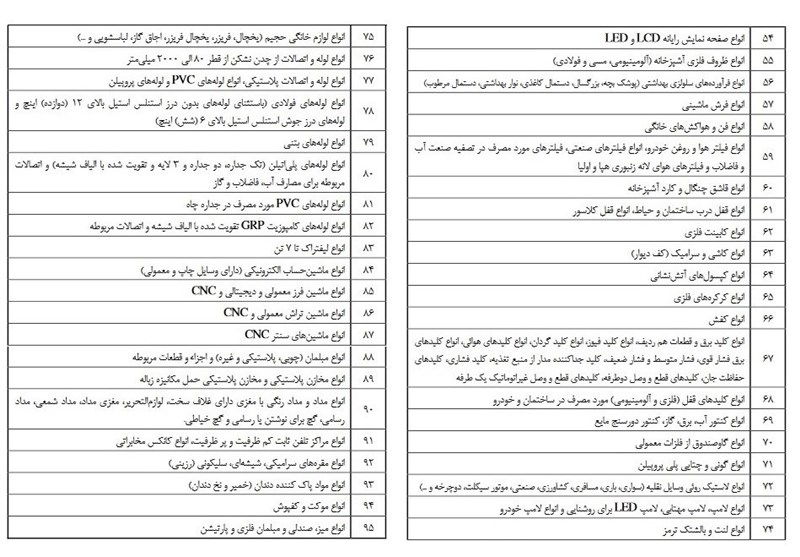 ۵۴ انواع صفحه نمایش رایانه LCD و LED
۵۵ انواع ظروف فلزی آشپزخانه (آلومینیومی، مسی و فولادی)
۵۶ انواع فرآورده‌های سلولزی بهداشتی (پوشک بچه، بزرگسال، دستمال کاغذی، نوار بهداشتی، دستمال مرطوب)
۵۷ انواع فرش ماشینی
۵۸ انواع فن و هواکش‌های خانگی
۵۹ انواع فیلتر هوا و روغن خودرو، انواع فیلترهای صنعتی، فیلترهای مورد مصرف در تصفیه صنعت آب
و فاضلاب و فیلترهای هوای لانه زنبوری هپا و اولپا
۶۰ انواع قاشق چنگال و کارد آشپزخانه
۶۱ انواع قفل درب ساختمان و حیاط، انواع قفل کلاسور
۶۲ انواع کابینت فلزی
۶۳ انواع کاشی و سرامیک (کف دیوار)
۶۴ انواع کپسول‌های آتش‌نشانی
۶۵ انواع کرکره‌های فلزی
۶۶ انواع کفش
۶۷ انواع کلید برق و قطعات هم ردیف، انواع کلید فیوز، انواع کلید گردان، انواع کلیدهای هوائی، انواع کلیدهای
برق فشار قوی، فشار متوسط و فشار ضعیف، کلید جداکننده مدار از منبع تغذیه، کلید فشاری، کلیدهای
حفاظت جان، کلیدهای قطع و وصل دوطرفه، کلیدهای قطع و وصل غیراتوماتیک یک طرفه
۶۸ انواع کلیدهای قفل (فلزی و آلومینیومی) مورد مصرف در ساختمان و خودرو
۶۹ انواع کنتور آب، برق، گاز، کنتور دورسنج مایع
۷۰ انواع گاوصندوق از فلزات معمولی
۷۱ انواع گونی و چتایی پلی پروپیلن
۷۲ انواع لاستیک روئی وسایل نقلیه (سواری، باری، مسافری، کشاورزی، صنعتی، موتور سیکلت، دوچرخه و ...)
۷۳ انواع لامپ، لامپ مهتابی، لامپ LED برای روشنایی و انواع لامپ خودرو
۷۴ انواع لنت و بالشتک ترمز
۷۵ انواع لوازم خانگی حجیم (یخچال، فریزر، یخچال فریزر، اجاق گاز، لباسشویی و ...)
۷۶ انواع لوله و اتصالات از چدن نشکن از قطر ۸۰ الی ۲۰۰۰ میلی‌متر
۷۷ انواع لوله و اتصالات پلاستیکی، انواع لوله‌های PVC و لوله‌های پروپیلن
۷۸ انواع لوله‌های فولادی (باستثنای لوله‌های بدون درز استنلس استیل بالای ۱۲ (دوازده) اینچ و
لوله‌های درز جوش استنلس استیل بالای ۶ (شش) اینچ)
۷۹ انواع لوله‌های بتنی
۸۰ انواع لوله‌های پلی‌اتیلن (تک جداره، دو جداره و ۳ لایه و تقویت شده با الیاف شیشه) و اتصالات
مربوطه برای مصارف آب، فاضلاب و گاز
۸۱ انواع لوله‌های PVC مورد مصرف در جداره چاه
۸۲ انواع لوله‌های کامپوزیت GRP تقویت شده با الیاف شیشه و اتصالات مربوطه
۸۳ انواع لیفتراک تا ۷ تن
۸۴ انواع ماشین‌حساب الکترونیکی (دارای وسایل چاپ و معمولی)
۸۵ انواع ماشین فرز معمولی و دیجیتالی و CNC
۸۶ انواع ماشین تراش معمولی و CNC
۸۷ انواع ماشین‌های سنتر CNC
۸۸ انواع مبلمان (چوبی، پلاستیکی و غیره) و اجزاء و قطعات مربوطه
۸۹ انواع مخازن پلاستیکی و مخازن پلاستیکی حمل مکانیزه زباله
۹۰ انواع مداد و مداد رنگی با مغزی دارای غلاف سخت، لوازم‌التحریر، مغزی مداد، مداد شمعی، مداد
رسامی، گچ برای نوشتن یا رسامی و گچ خیاطی.
۹۱ انواع مراکز تلفن ثابت کم ظرفیت و پر ظرفیت، انواع کانکس مخابراتی
۹۲ انواع مقره‌های سرامیکی، شیشه‌ای، سلیکونی (رزینی)
۹۳ انواع مواد پاک کننده دندان (خمیر و نخ دندان)
۹۴ انواع موکت و کفپوش
۹۵ انواع میز، صندلی و مبلمان فلزی و پارتیشن